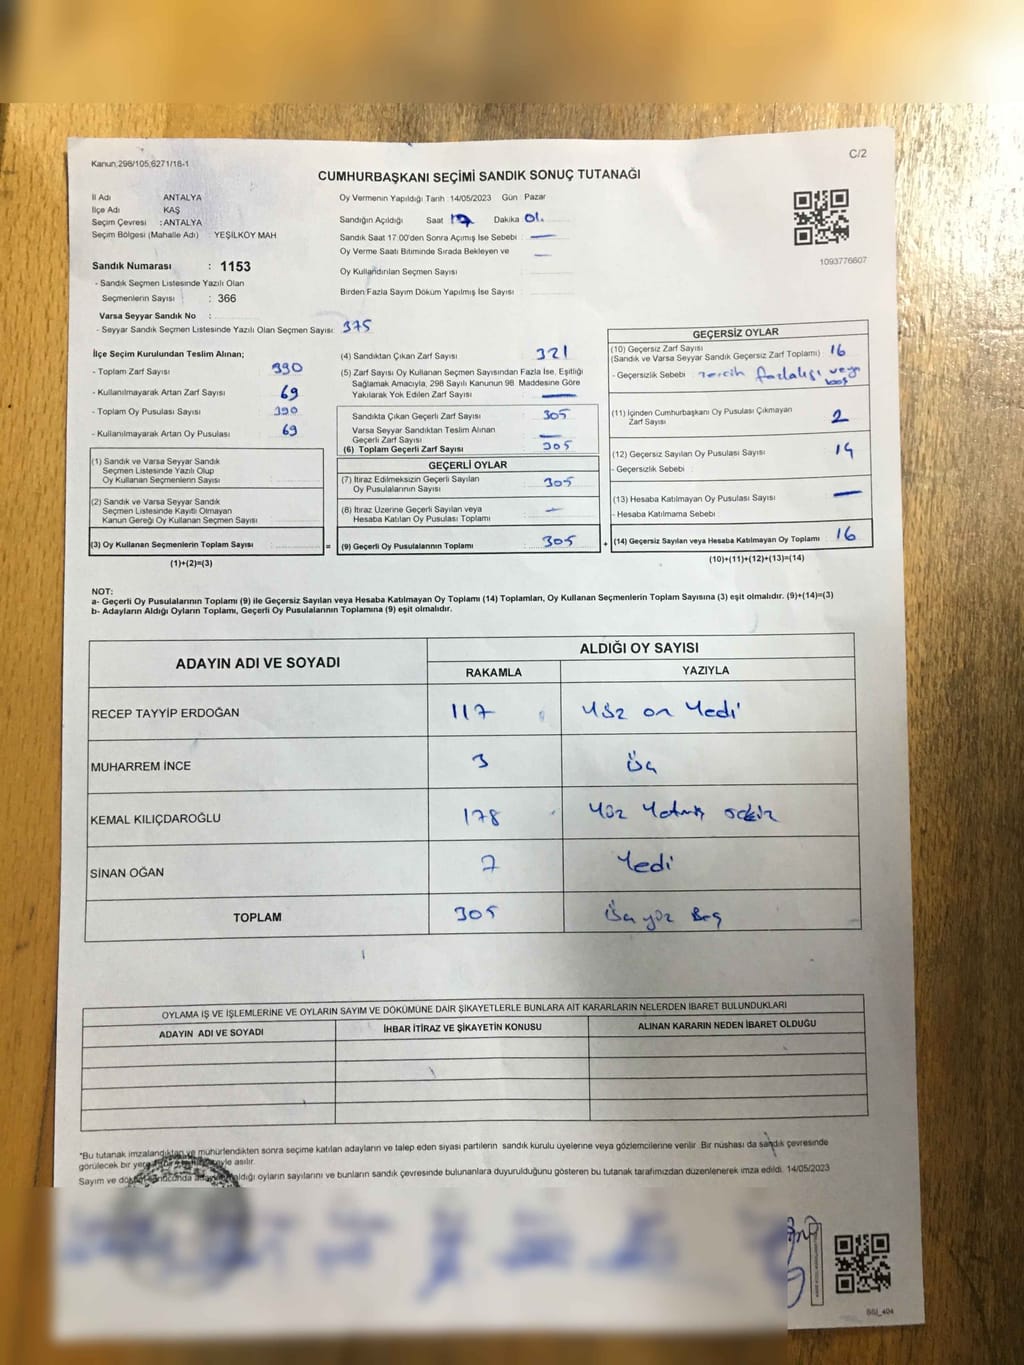 Kanun:298/105,6271/18-1
C/2
CUMHURBAŞKANI SEÇİMİ SANDIK SONUÇ TUTANAĞI
İl Adı ANTALYA
İlçe Adı KAŞ
Seçim Çevresi : ANTALYA
Seçim Bölgesi (Mahalle Adı) : YEŞİLKÖY MAH
Sandık Numarası : 1153
- Sandık Seçmen Listesinde Yazılı Olan
Seçmenlerin Sayısı : 366
Varsa Seyyar Sandık No :
- Seyyar Sandık Seçmen Listesinde Yazılı Olan Seçmen Sayısı: 375
Oy Vermenin Yapıldığı Tarih 14/05/2023 Gün Pazar
Sandığın Açıldığı Saat 17 Dakika 01.
Sandık Saat 17:00'den Sonra Açımış İse Sebebi : —
Oy Verme Saati Bitiminde Sırada Bekleyen ve —
Oy Kullandırılan Seçmen Sayısı :
Birden Fazla Sayım Döküm Yapılmış İse Sayısı :
1093776607
İlçe Seçim Kurulundan Teslim Alınan;
- Toplam Zarf Sayısı : 390
- Kullanılmayarak Artan Zarf Sayısı : 69
- Toplam Oy Pusulası Sayısı : 390
- Kullanılmayarak Artan Oy Pusulası : 69
(1) Sandık ve Varsa Seyyar Sandık
Seçmen Listesinde Yazılı Olup
Oy Kullanan Seçmenlerin Sayısı :
(2) Sandık ve Varsa Seyyar Sandık
Seçmen Listesinde Kayıtlı Olmayan
Kanun Gereği Oy Kullanan Seçmen Sayısı :
(3) Oy Kullanan Seçmenlerin Toplam Sayısı : =
(1)+(2)=(3)
(4) Sandıktan Çıkan Zarf Sayısı : 321
(5) Zarf Sayısı Oy Kullanan Seçmen Sayısından Fazla İse, Eşitliği
Sağlamak Amacıyla, 298 Sayılı Kanunun 98. Maddesine Göre
Yakılarak Yok Edilen Zarf Sayısı : —
Sandıkta Çıkan Geçerli Zarf Sayısı : 305
Varsa Seyyar Sandıktan Teslim Alınan
Geçerli Zarf Sayısı : —
(6) Toplam Geçerli Zarf Sayısı : 305
GEÇERLİ OYLAR
(7) İtiraz Edilmeksizin Geçerli Sayılan
Oy Pusulalarının Sayısı : 305
(8) İtiraz Üzerine Geçerli Sayılan veya
Hesaba Katılan Oy Pusulası Toplamı : —
(9) Geçerli Oy Pusulalarının Toplamı : 305 +
GEÇERSİZ OYLAR
(10) Geçersiz Zarf Sayısı
(Sandık ve Varsa Seyyar Sandık Geçersiz Zarf Toplamı) : 16
- Geçersizlik Sebebi : Tercih fazlalığı veya boş
(11) İçinden Cumhurbaşkanı Oy Pusulası Çıkmayan
Zarf Sayısı : 2
(12) Geçersiz Sayılan Oy Pusulası Sayısı : 14
- Geçersizlik Sebebi :
(13) Hesaba Katılmayan Oy Pusulası Sayısı : —
- Hesaba Katılmama Sebebi :
(14) Geçersiz Sayılan veya Hesaba Katılmayan Oy Toplamı : 16
(10)+(11)+(12)+(13)=(14)
NOT:
a- Geçerli Oy Pusulalarının Toplamı (9) ile Geçersiz Sayılan veya Hesaba Katılmayan Oy Toplamı (14) Toplamları, Oy Kullanan Seçmenlerin Toplam Sayısına (3) eşit olmalıdır. (9)+(14)=(3)
b- Adayların Aldığı Oyların Toplamı, Geçerli Oy Pusulalarının Toplamına (9) eşit olmalıdır.
ADAYIN ADI VE SOYADI
ALDIĞI OY SAYISI
RAKAMLA YAZIYLA
RECEP TAYYİP ERDOĞAN 117 Yüz on Yedi
MUHARREM İNCE 3 Üç
KEMAL KILIÇDAROĞLU 178 Yüz Yetmiş sekiz
SİNAN OĞAN 7 Yedi
TOPLAM 305 Üç yüz Beş
OYLAMA İŞ VE İŞLEMLERİNE VE OYLARIN SAYIM VE DÖKÜMÜNE DAİR ŞİKAYETLERLE BUNLARA AİT KARARLARIN NELERDEN İBARET BULUNDUKLARI
ADAYIN ADI VE SOYADI İHBAR İTİRAZ VE ŞİKAYETİN KONUSU ALINAN KARARIN NEDEN İBARET OLDUĞU
*Bu tutanak imzalandıktan ve mühürlendikten sonra seçime katılan adayların ve talep eden siyasi partilerin sandık kurulu üyelerine veya gözlemcilerine verilir. Bir nüshası da sandık çevresinde
görülecek bir yere asılır.
Sayım ve döküm aldığı oyların sayılarını ve bunların sandık çevresinde bulunanlara duyurulduğunu gösteren bu tutanak tarafımızdan düzenlenerek imza edildi. 14/05/2023
SSI_404